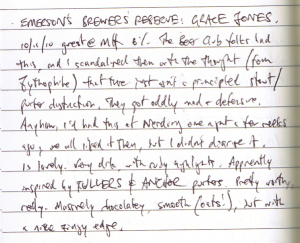 EMERSON'S BREWER'S RESERVE: GRACE JONES.
10/11/10 growler @ MH 6%. The Beer Club folks had
this, and I scandalised them with the thought (from
Zythophile) that there just isn't a principled stout/
porter distinction. They got oddly mad & defensive.
Anyhow, I'd had this at Reading once a few weeks
ago, we all liked it then, but I didn't diarise it.
is lovely. Very dark with ruby highlights. Apparently
inspired by FULLERS & ANCHOR porters. Pretty worthy,
really. Massively chocolatey, smooth (oats!), but with
a nice zingy edge.